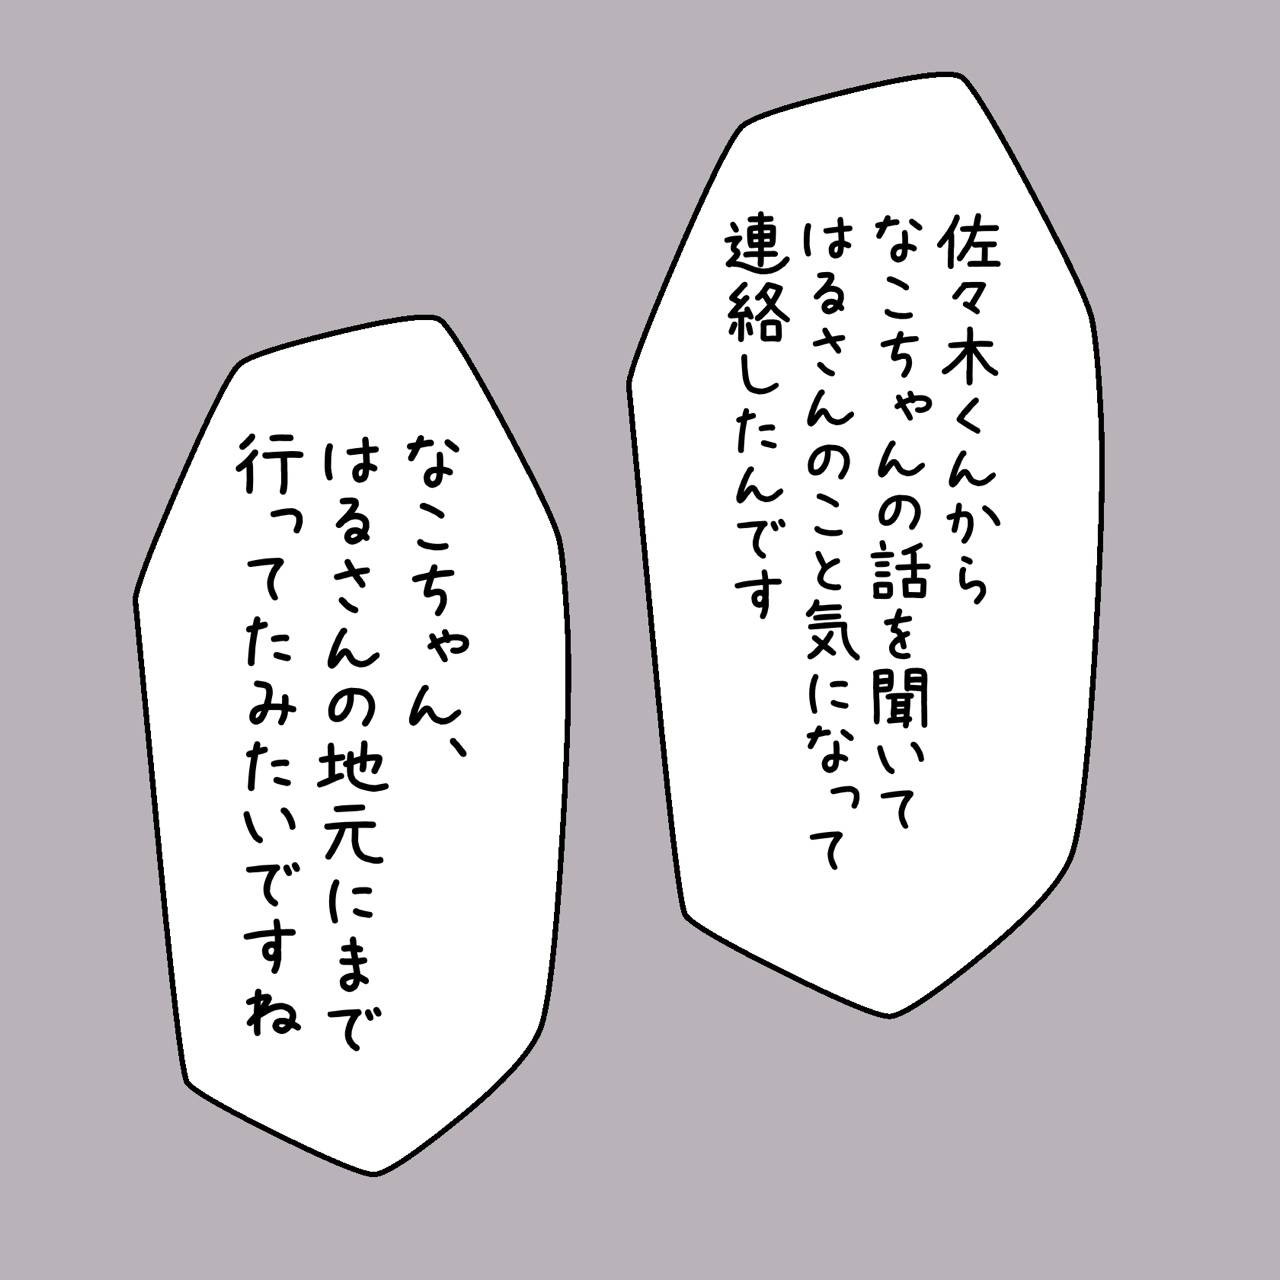 佐々木くんから
なこちゃんの話を聞いて
はるさんのこと気になって
連絡したんです
なこちゃん、
はるさんの地元にまで
行ってたみたいですね